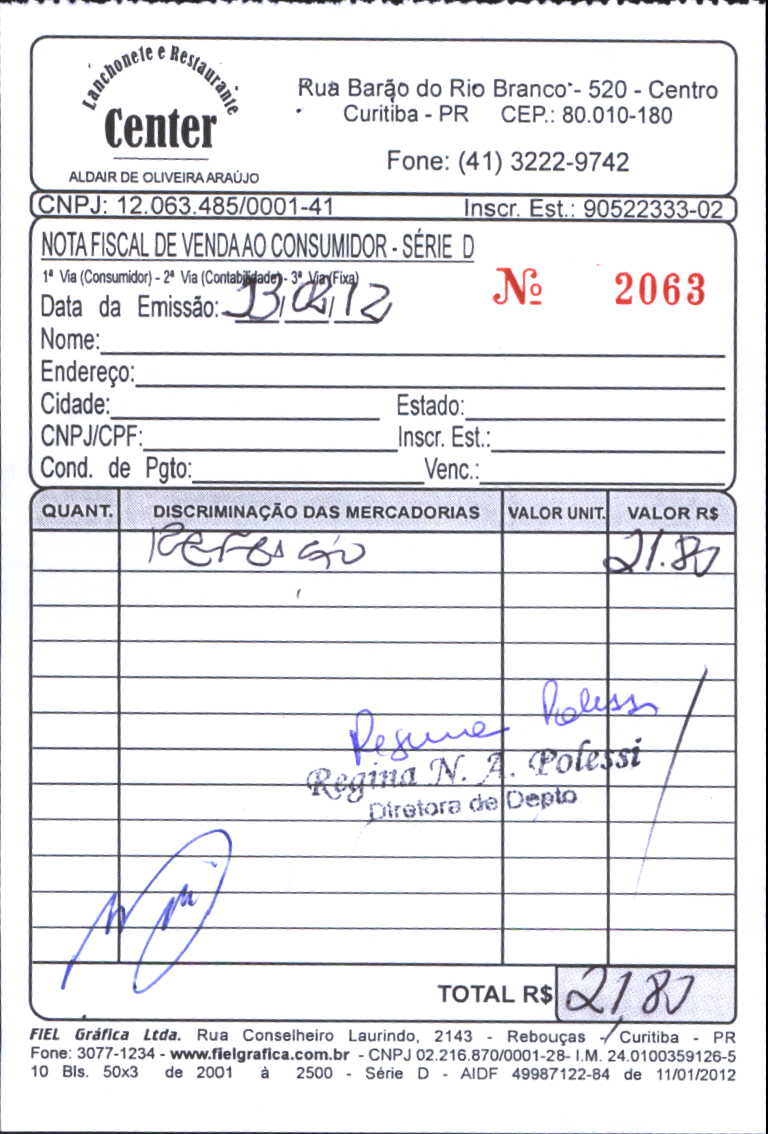 Lanchonete e Restaurante
Center
ALDAIR DE OLIVEIRA ARAÚJO
Rua Barão do Rio Branco - 520 - Centro
Curitiba - PR CEP.: 80.010-180
Fone: (41) 3222-9742
CNPJ: 12.063.485/0001-41 Inscr. Est.: 90522333-02
NOTA FISCAL DE VENDA AO CONSUMIDOR - SÉRIE D
1ª Via (Consumidor) - 2ª Via (Contabilidade) - 3ª Via (Fixa)
Nº 2063
Data da Emissão: 13/02/12
Nome:
Endereço:
Cidade: Estado:
CNPJ/CPF: Inscr. Est.:
Cond. de Pgto: Venc.:
QUANT. DISCRIMINAÇÃO DAS MERCADORIAS VALOR UNIT. VALOR R$
REFEIÇÃO 21.80
Regina Polessi
Regina N. A. Polessi
Diretora de Depto
TOTAL R$ 21,80
FIEL Gráfica Ltda. Rua Conselheiro Laurindo, 2143 - Rebouças - Curitiba - PR
Fone: 3077-1234 - www.fielgrafica.com.br - CNPJ 02.216.870/0001-28- I.M. 24.0100359126-5
10 Bls. 50x3 de 2001 à 2500 - Série D - AIDF 49987122-84 de 11/01/2012